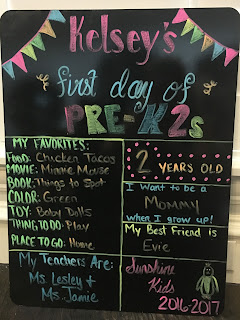 Kelsey's
first day of
PRE-K2s
MY FAVORITES:
FOOD: Chicken Tacos
MOVIE: Minnie Mouse
BOOK: Things to Spot
COLOR: Green
TOY: Baby Dolls
THING TO DO: Play
PLACE TO GO: Home
My Teachers Are:
Ms. Lesley &
Ms. Jamie
2 YEARS OLD
I Want to be a
MOMMY
when I grow up!
My Best Friend is
Evie
Sunshine
Kids
2016-2017